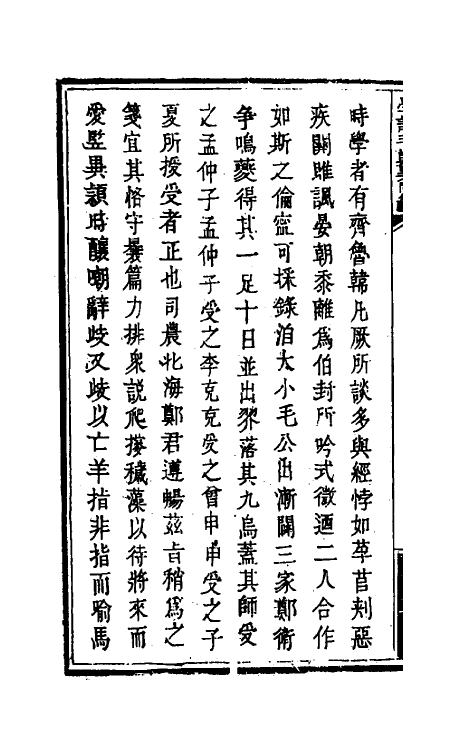 時學者有齊魯韓凡厥所談多與經悖如芣苢刺惡
疾關雎諷晏朝黍離為伯封所吟式微迺二人合作
如斯之倫寍可採錄洎大小毛公出漸闢三家鄭衛
争鳴夔得其一足十日並出羿落其九烏蓋其師受
之孟仲子孟仲子受之李克克受之曾申申受之子
夏所授受者正也司農北海鄭君遵暢茲㫖稍為之
箋宜其恪守曩篇力排衆説爬摟穢藻以待將來而
愛竪異頴時釀嘲辭歧又歧以亡羊指非指而喻馬